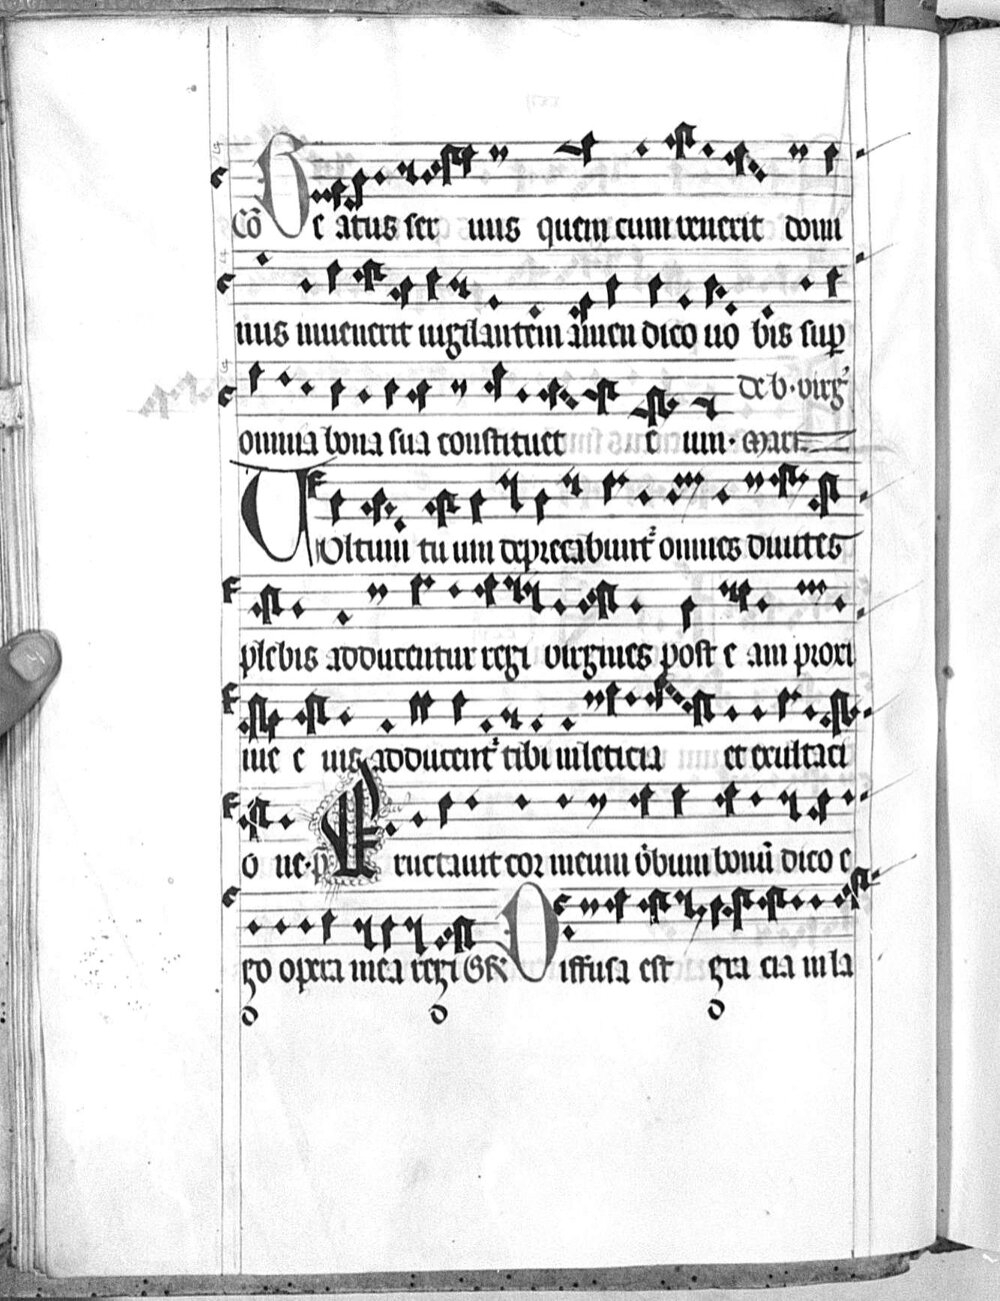 Cō Be atus ser uus quem cum uenerit domi
nus inuenerit uigilantem amen dico uo bis sup
omnia bona sua constituet e um. de b. virg
Vultum tu um deprecabunt omnes diuites
plebis adducentur regi virgines post e am proxi
me e ius adducent tibi in leticia et exultaci
o ne. p̄ Eructauit cor meum ūbum bonū dico e
go opera mea regi Gr̄ Diffusa est gra cia in la